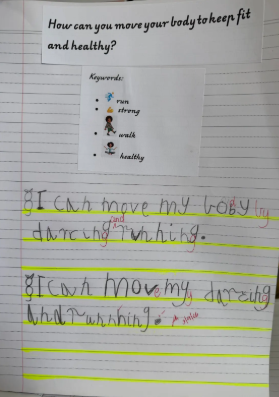 How can you move your body to keep fit
and healthy?
Keywords:
run
strong
walk
healthy
I can move my body by
dancing and running.
I can move my dancing
and runnhing.